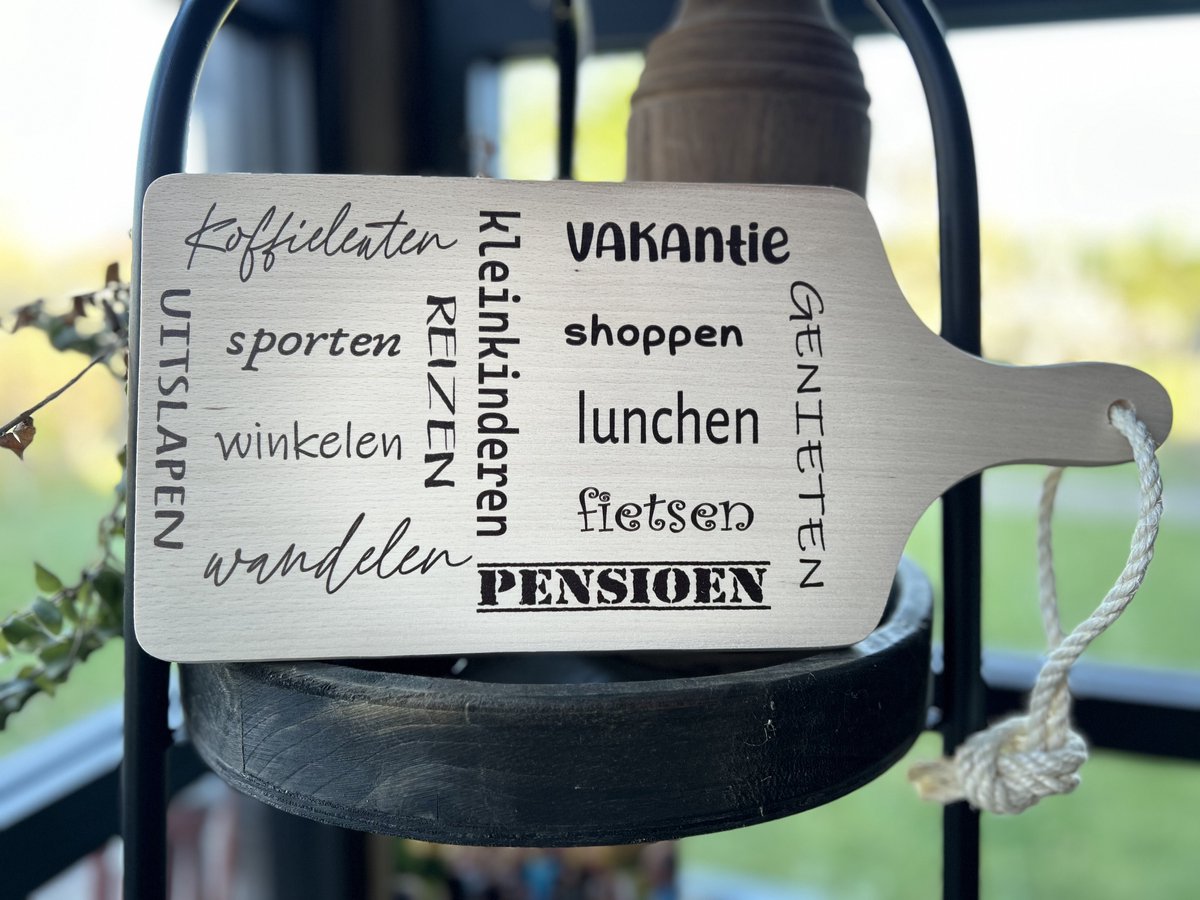 Koffieleuten
UITSLAPEN
sporten
REIZEN
winkelen
wandelen
kleinkinderen
VAKAntie
shoppen
lunchen
fietsen
PENSIOEN
GENIETEN